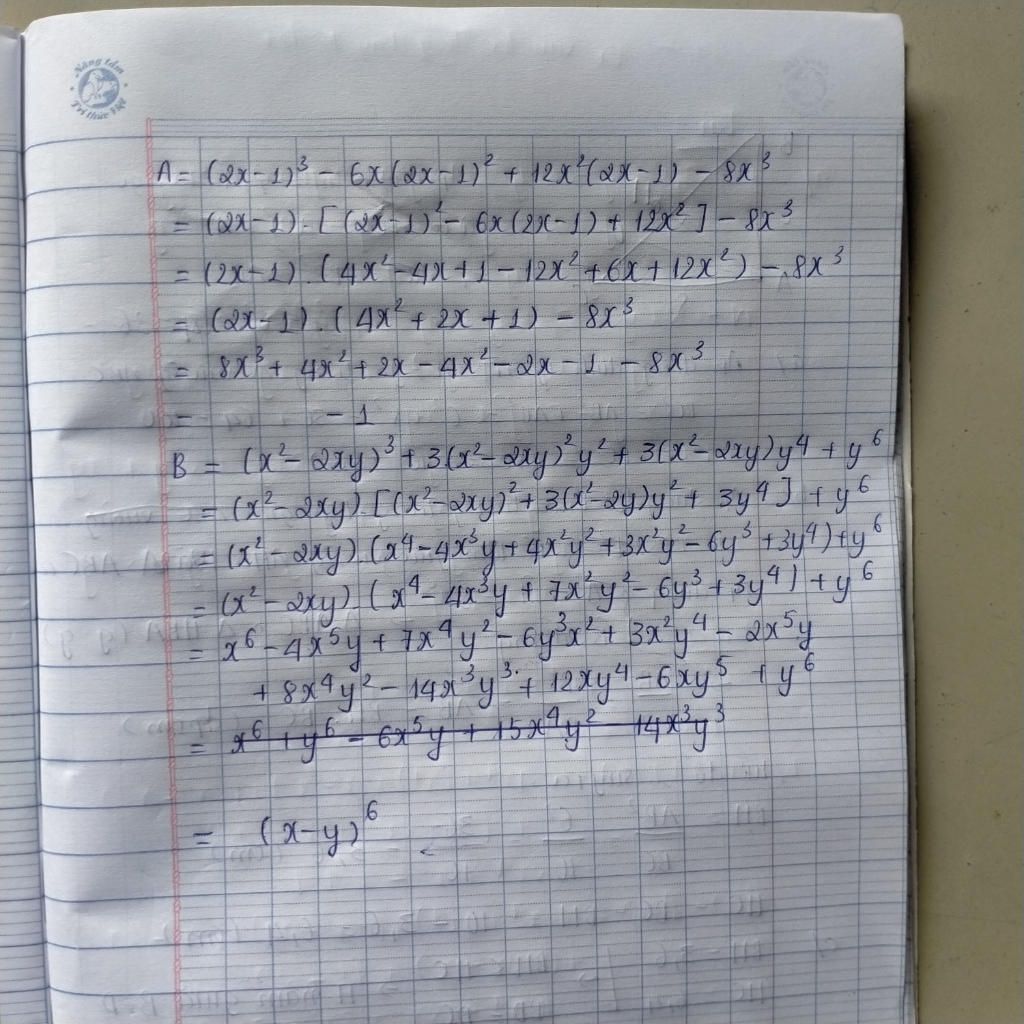 Nâng tầm
Tri thức Việt
A = (2x-1)³ - 6x(2x-1)² + 12x²(2x-1) - 8x³
= (2x-1).[(2x-1)² - 6x(2x-1) + 12x²] - 8x³
= (2x-1).(4x²-4x+1-12x²+6x+12x²) - 8x³
= (2x-1).(4x² + 2x + 1) - 8x³
= 8x³ + 4x² + 2x - 4x² - 2x - 1 - 8x³
= - 1
B = (x²-2xy)³ + 3(x²-2xy)²y² + 3(x²-2xy)y⁴ + y⁶
= (x²-2xy).[(x²-2xy)² + 3(x²-2y)y² + 3y⁴] + y⁶
= (x²-2xy).(x⁴-4x³y+4x²y²+3x²y²-6y³+3y⁴)+y⁶
= (x²-2xy).(x⁴-4x³y + 7x²y² - 6y³ + 3y⁴) + y⁶
= x⁶ - 4x⁵y + 7x⁴y² - 6y³x² + 3x²y⁴ - 2x⁵y
+ 8x⁴y² - 14x³y³ + 12xy⁴ - 6xy⁵ + y⁶
= x⁶ + y⁶ - 6x⁵y + 15x⁴y² - 14x³y³
= (x-y)⁶